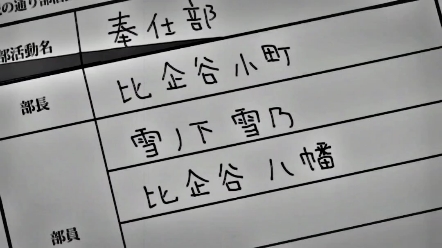 の通り部活
部活動名 奉仕部
部長 比企谷 小町
雪ノ下 雪乃
部員 比企谷 八幡